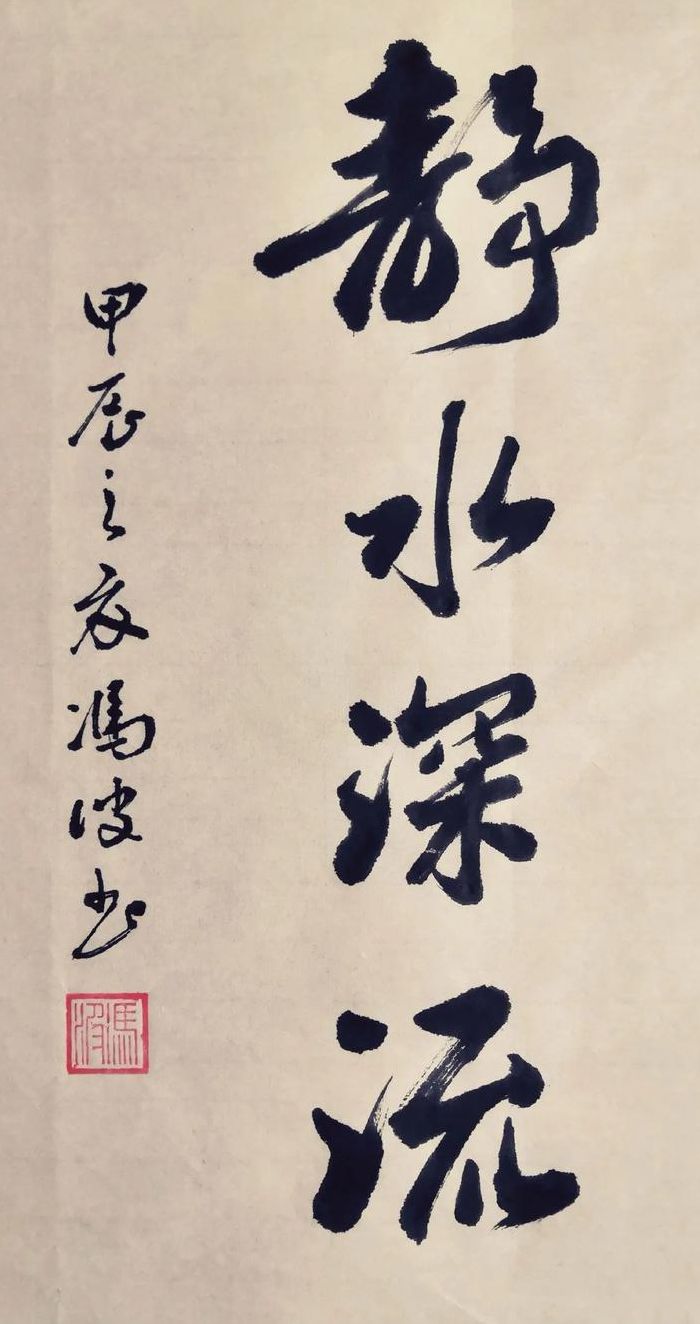 静水深流
甲辰之夏馮波书
馮波